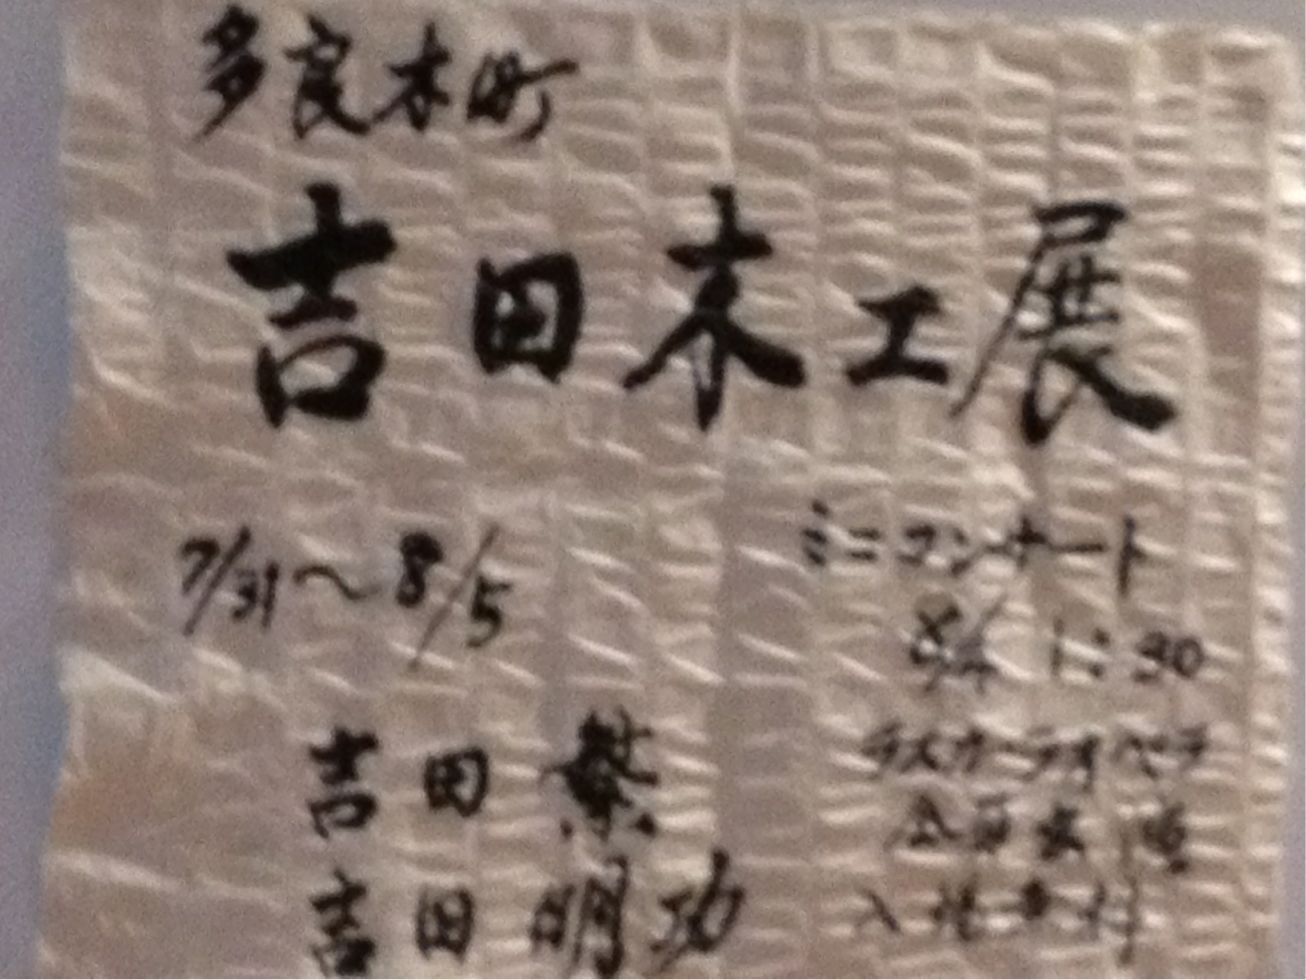 多良木町
吉田木工展
7/31～8/5
ミニコンサート
8/4 1:30
吉田 繁
吉田 明功